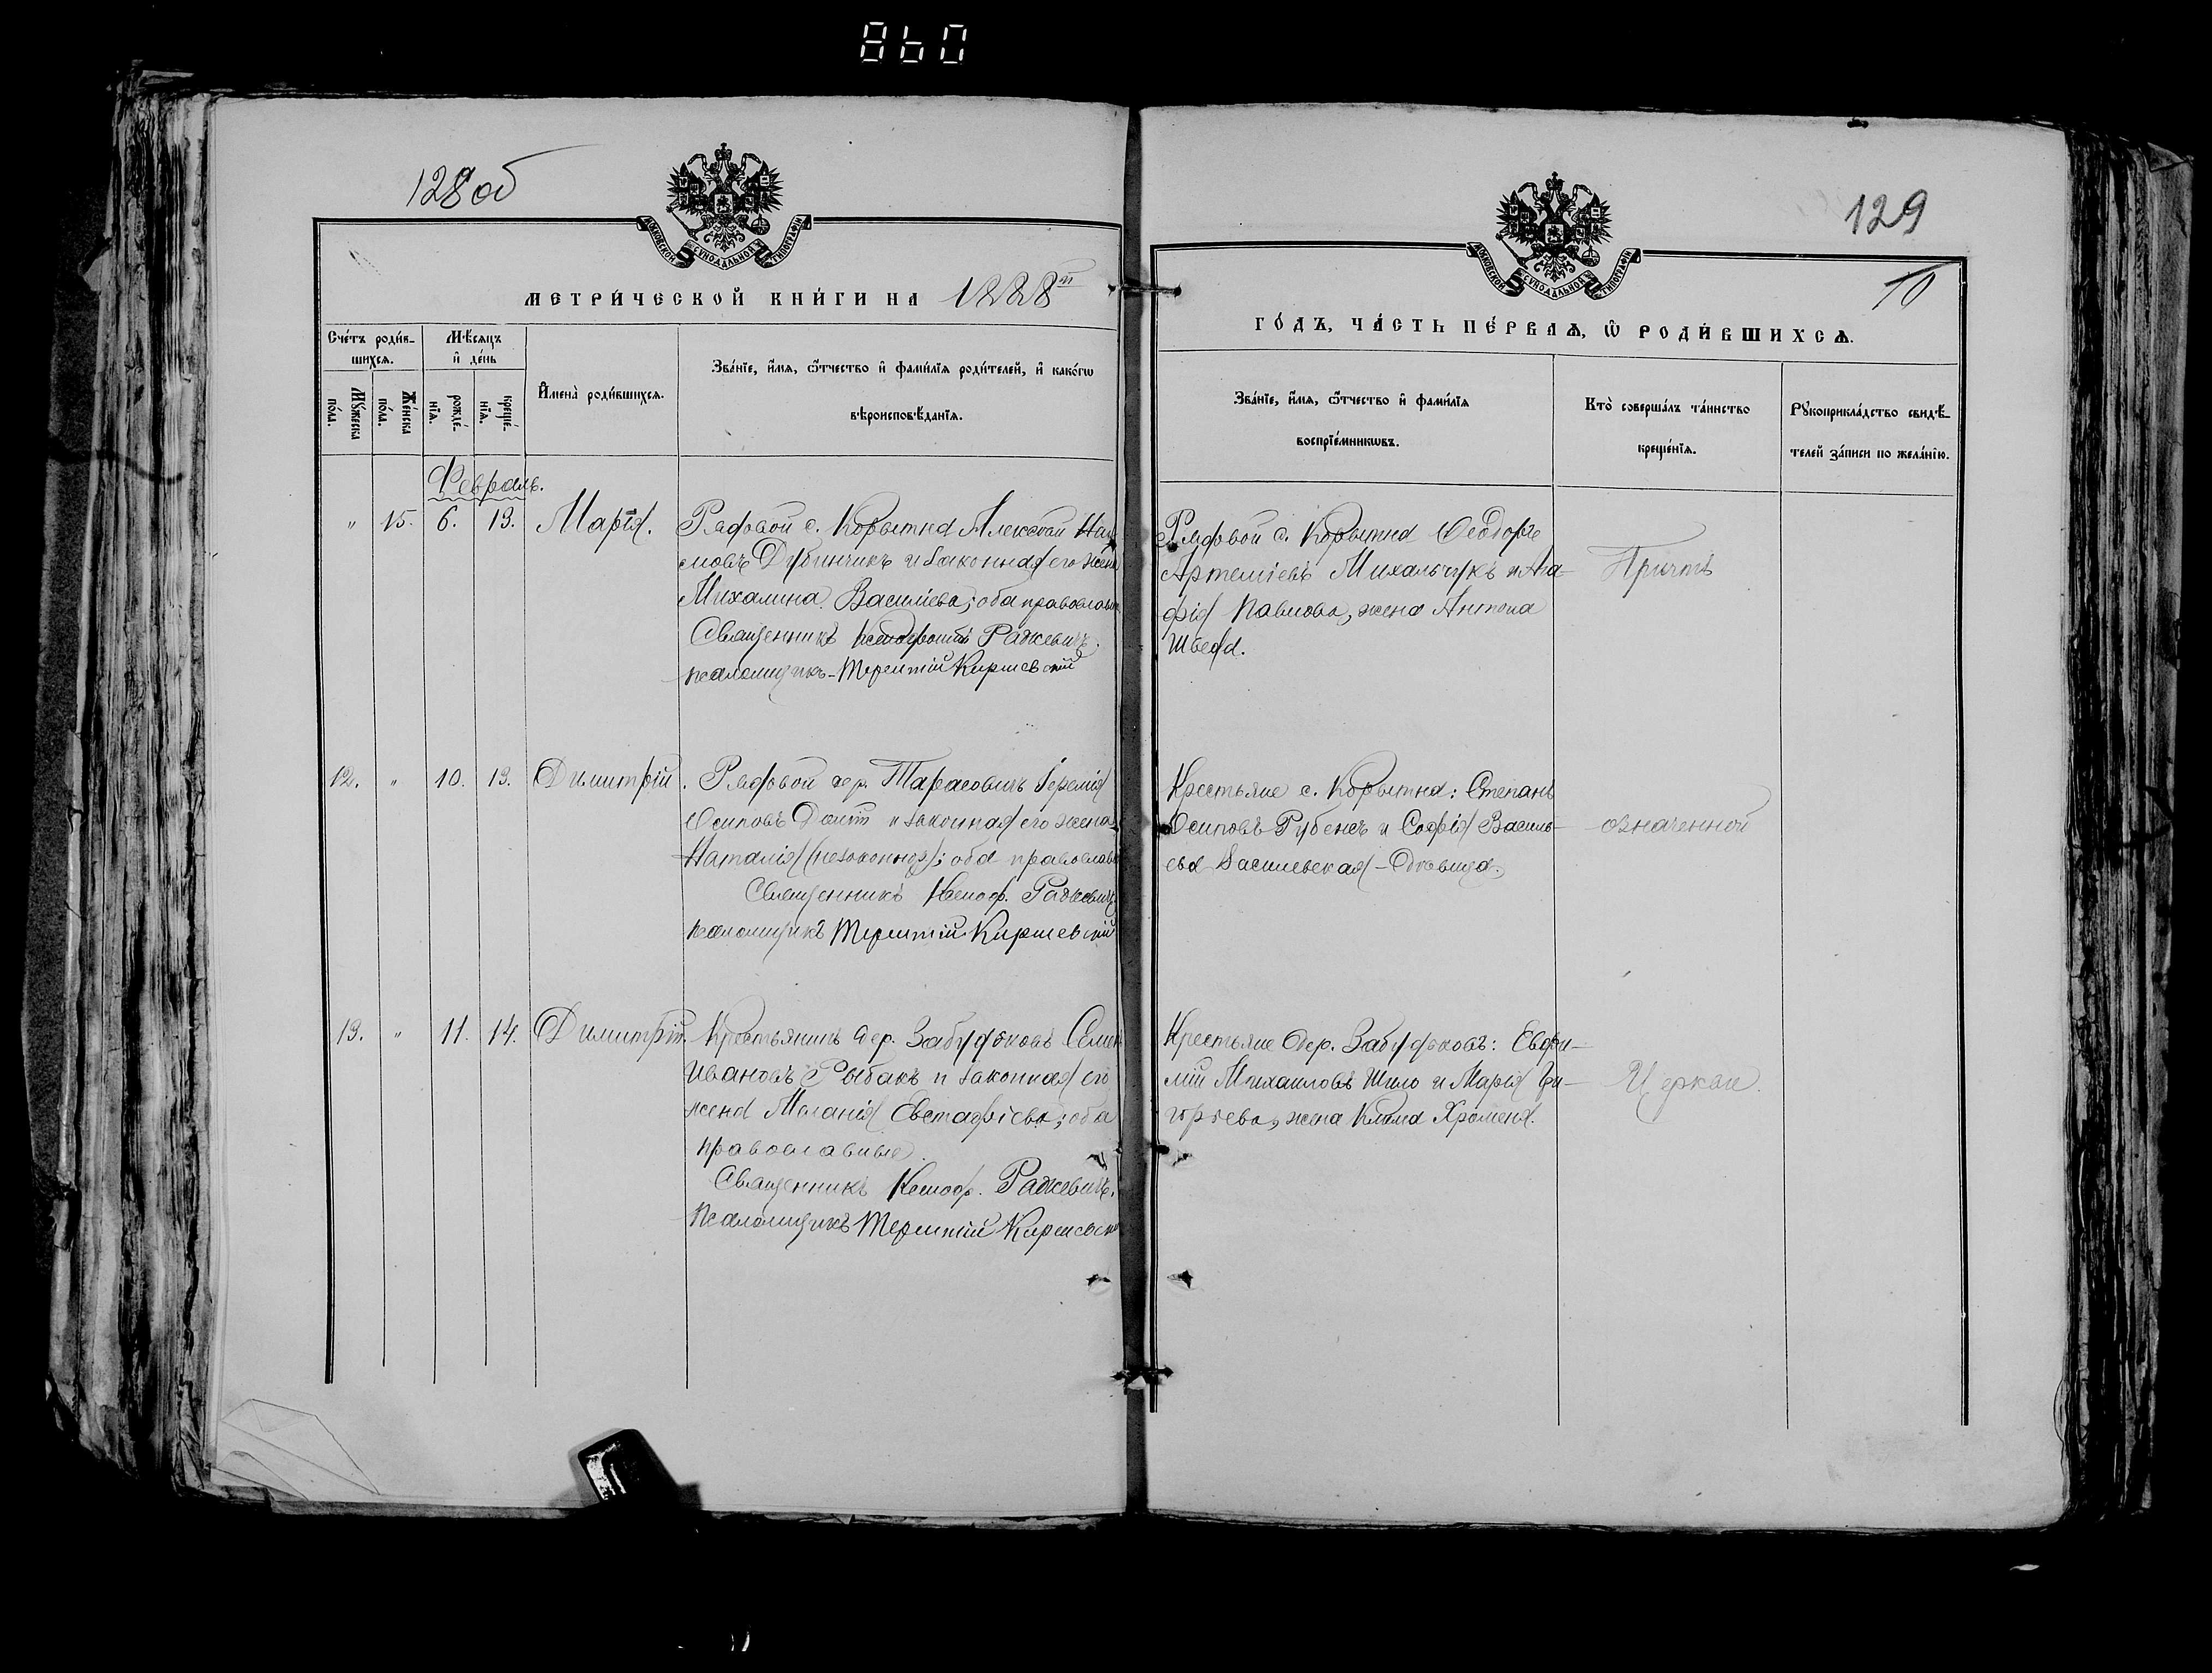 860
128 об
МОСКОВСКОЙ СѴНОДАЛЬНОЙ ТИПОГРАФІИ
МЕТРИ́ЧЕСКОЙ КНИ́ГИ НА 1888й
Сче́тъ роди́в-
шихся.
Мѣ́сяцъ
и҆ де́нь
Мꙋ́жеска
по́ла.
Же́нска
по́ла.
рожде́-
нїѧ.
креще́-
нїѧ.
И҆мена̀ роди́вшихся.
Зва́нїе, и҆́мя, ѻ҆́тчество и҆ фами́лїя роди́телей, и҆ како́гѡ
вѣроисповѣ́данїя.
Февраль.
" 15. 6. 13. Марія.
Рядовой с. Корытна Алексѣй Нау
мовъ Дубинчикъ и законная его жена
Михалина Васильева; оба православн
Священникъ Ксенофонтъ Радкевичъ.
псаломщикъ-Терентій Киршевскій
12. " 10. 13. Димитрій.
Рядовой дер. Тарасовичъ Іеремія
Осиповъ и законная его жена
Наталія (незаконнор); оба православн
Священникъ Ксеноф. Радкевичъ
псаломщикъ Терентій Киршевскій
13. " 11. 14. Димитрій.
Крестьянинъ дер. Забудьковъ Семен
Ивановъ Рыбакъ и законная его
жена Меланія Евстафіева; оба
православные.
Священникъ Ксеноф. Радкевичъ.
псаломщикъ Терентій Киршевскі
129
МОСКОВСКОЙ СѴНОДАЛЬНОЙ ТИПОГРАФІИ
10
ГО́ДЪ, ЧА́СТЬ ПЕ́РВАѦ, Ѡ҆ РОДИ́ВШИХСѦ.
Зва́нїе, и҆́мя, ѻ҆́тчество и҆ фами́лїя
воспрїе́мникѡвъ.
Кто̀ соверша́лъ та́инство
креще́нїя.
Рꙋкоприкла́дство свидѣ́-
телей за́писи по жела́нїю.
Рядовой с. Корытна Ѳеодоръ
Артеміевъ Михальчукъ и Ага-
фія Павлова, жена Антона
Шведа.
Причтъ
Крестьяне с. Корытна: Степанъ
Осиповъ Рубенъ и Софія Василь-
ева Василевская - вдовица.
означенной
Крестьяне дер. Забудьковъ: Евфи-
мій Михаиловъ Шило и Марія Гри-
горіева, жена Клима Хроменя.
Церкви.